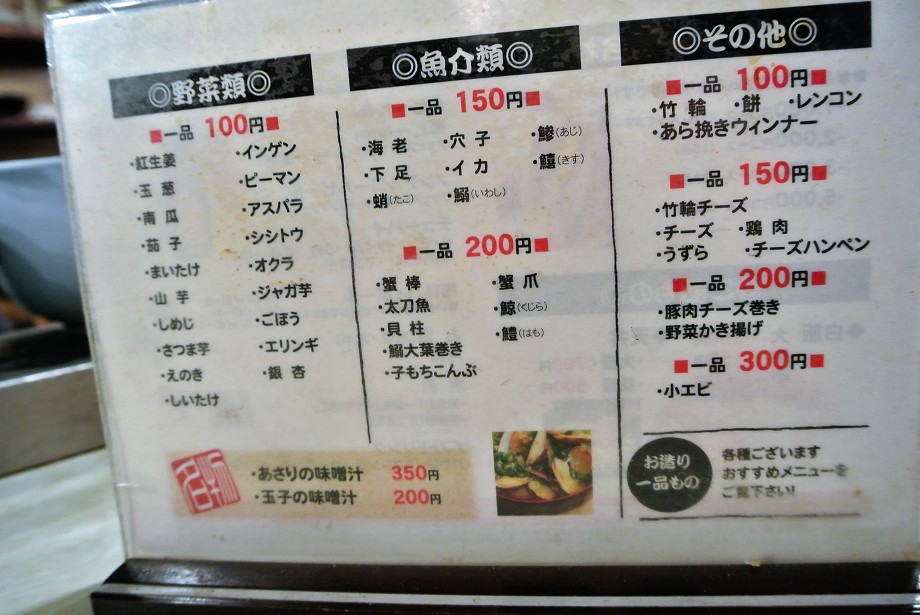 ◎野菜類◎
■一品 100円■
・紅生姜
・玉葱
・南瓜
・茄子
・まいたけ
・山芋
・しめじ
・さつま芋
・えのき
・しいたけ
・インゲン
・ピーマン
・アスパラ
・シシトウ
・オクラ
・ジャガ芋
・ごぼう
・エリンギ
・銀杏
◎魚介類◎
■一品 150円■
・海老 ・穴子 ・鯵(あじ)
・下足 ・イカ ・鱚(きす)
・蛸(たこ) ・鰯(いわし)
■一品 200円■
・蟹棒 ・蟹爪
・太刀魚 ・鯨(くじら)
・貝柱 ・鱧(はも)
・鰯大葉巻き
・子もちこんぶ
・あさりの味噌汁 350円
・玉子の味噌汁 200円
◎その他◎
■一品 100円■
・竹輪 ・餅 ・レンコン
・あら挽きウィンナー
■一品 150円■
・竹輪チーズ
・チーズ ・鶏肉
・うずら ・チーズハンペン
■一品 200円■
・豚肉チーズ巻き
・野菜かき揚げ
■一品 300円■
・小エビ
お造り
一品もの
各種ございます
おすすめメニューを
ご覧下さい!